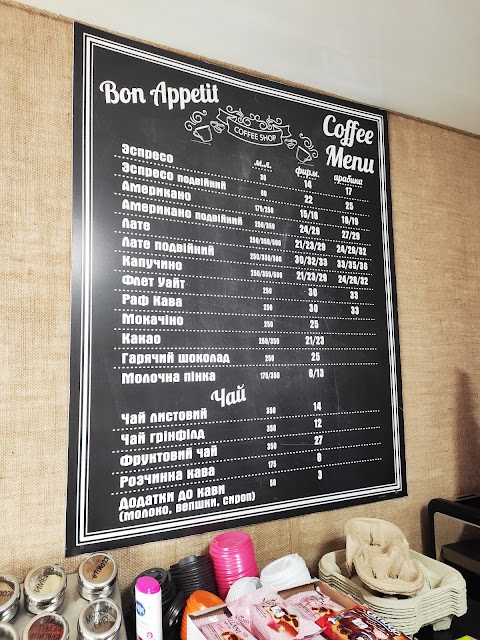 Bon Appetit
COFFEE SHOP
Coffee Menu
м.л. фирм. арабика
Эспресо 30 14 17
Эспресо подвійний 60 22 25
Американо 175/250 15/16 18/19
Американо подвійний 250/350 24/26 27/29
Лате 250/350/500 21/23/29 24/26/32
Лате подвійний 250/350/500 30/32/33 33/35/38
Капучино 250/350/500 21/23/29 24/26/32
Флет Уайт 250 30 33
Раф Кава 250 30 33
Мокачіно 250 25
Какао 250/350 21/23
Гарячий шоколад 250 25
Молочна пінка 175/350 8/13
Чай
Чай листовий 350 14
Чай грінфілд 350 12
Фруктовий чай 350 27
Розчинна кава 175 8
Додатки до кави 50 3
(молоко, вершки, сироп)